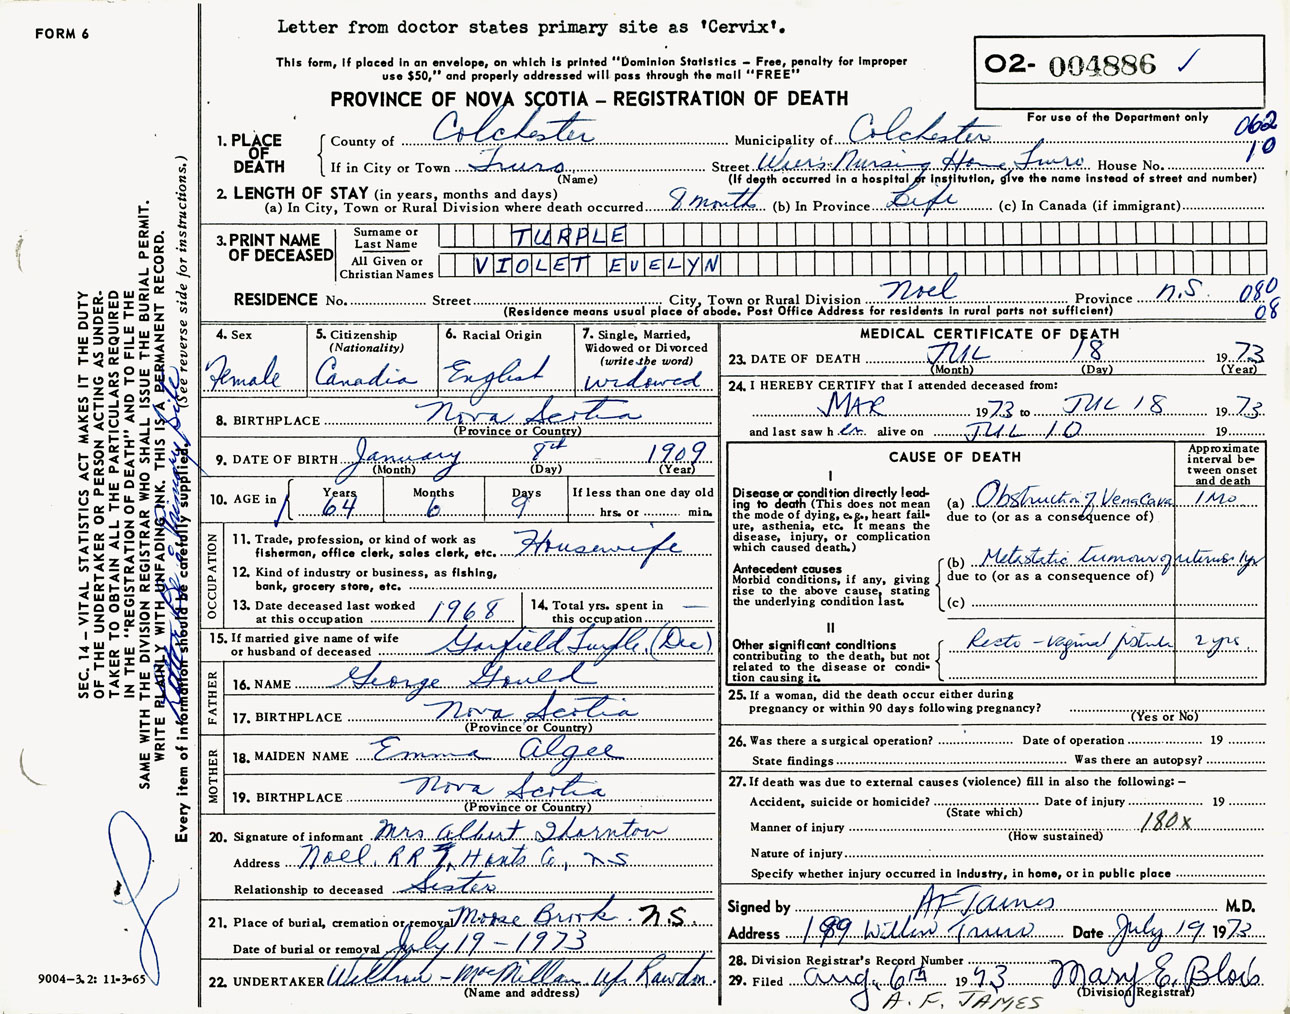 FORM 6
Letter from doctor states primary site as 'Cervix'.
This form, if placed in an envelope, on which is printed "Dominion Statistics – Free, penalty for improper
use $50," and properly addressed will pass through the mail "FREE"
O2- 004886 ✓
PROVINCE OF NOVA SCOTIA – REGISTRATION OF DEATH
For use of the Department only
062
10
1. PLACE OF DEATH County of Colchester Municipality of Colchester
If in City or Town Truro Street Wier's Nursing Home, Truro House No.
(Name) (If death occurred in a hospital or institution, give the name instead of street and number)
2. LENGTH OF STAY (in years, months and days)
(a) In City, Town or Rural Division where death occurred 8 months (b) In Province Life (c) In Canada (if immigrant)
3. PRINT NAME OF DECEASED Surname or Last Name TURPLE
All Given or Christian Names VIOLET EVELYN
RESIDENCE No. Street City, Town or Rural Division Noel Province N.S. 080
08
(Residence means usual place of abode. Post Office Address for residents in rural parts not sufficient)
4. Sex Female
5. Citizenship (Nationality) Canadia
6. Racial Origin English
7. Single, Married, Widowed or Divorced (write the word) widowed
8. BIRTHPLACE Nova Scotia
(Province or Country)
9. DATE OF BIRTH January 8th 1909
(Month) (Day) (Year)
10. AGE in Years 64 Months 6 Days 9 If less than one day old hrs. or min.
OCCUPATION
11. Trade, profession, or kind of work as
fisherman, office clerk, sales clerk, etc. Housewife
12. Kind of industry or business, as fishing,
bank, grocery store, etc.
13. Date deceased last worked at this occupation 1968
14. Total yrs. spent in this occupation —
15. If married give name of wife
or husband of deceased Garfield Turple (Dec)
FATHER
16. NAME George Gould
17. BIRTHPLACE Nova Scotia
(Province or Country)
MOTHER
18. MAIDEN NAME Emma Algee
19. BIRTHPLACE Nova Scotia
(Province or Country)
20. Signature of informant Mrs Albert Thornton
Address Noel, RR 1, Hants Co., N S
Relationship to deceased Sister
21. Place of burial, cremation or removal Moose Brook N.S.
Date of burial or removal July 19 – 1973
22. UNDERTAKER – McMillan Up. Rawdon
(Name and address)
MEDICAL CERTIFICATE OF DEATH
23. DATE OF DEATH JUL 18 1973
(Month) (Day) (Year)
24. I HEREBY CERTIFY that I attended deceased from:
MAR 1973 to JUL 18 1973
and last saw her alive on JUL 10 19
CAUSE OF DEATH
Approximate interval between onset and death
I
Disease or condition directly lead-
ing to death (This does not mean
the mode of dying, e.g., heart fail-
ure, asthenia, etc. It means the
disease, injury, or complication
which caused death.)
(a) Obstruction of Vena Cava 1 Mo
due to (or as a consequence of)
Antecedent causes
Morbid conditions, if any, giving
rise to the above cause, stating
the underlying condition last.
(b) Metastatic tumour of uterus 1 yr
due to (or as a consequence of)
(c)
II
Other significant conditions
contributing to the death, but not
related to the disease or condi-
tion causing it.
Recto-vaginal fistula 2 yrs.
25. If a woman, did the death occur either during
pregnancy or within 90 days following pregnancy?
(Yes or No)
26. Was there a surgical operation? Date of operation 19
State findings Was there an autopsy?
27. If death was due to external causes (violence) fill in also the following: –
Accident, suicide or homicide? Date of injury 19
(State which)
Manner of injury 180x
(How sustained)
Nature of injury
Specify whether injury occurred in industry, in home, or in public place
Signed by A F James M.D.
Address Truro Date July 19 1973
28. Division Registrar's Record Number
29. Filed Aug. 6th 1973 Mary E. Blois
(Division Registrar)
A. F. JAMES
SEC. 14 – VITAL STATISTICS ACT MAKES IT THE DUTY
OF THE UNDERTAKER OR PERSON ACTING AS UNDER-
TAKER TO OBTAIN ALL THE PARTICULARS REQUIRED
IN THE "REGISTRATION OF DEATH" AND TO FILE THE
SAME WITH THE DIVISION REGISTRAR WHO SHALL ISSUE THE BURIAL PERMIT.
WRITE PLAINLY WITH UNFADING INK. THIS IS A PERMANENT RECORD.
Every item of information should be carefully supplied. (See reverse side for instructions.)
9004–3.2: 11-3-65